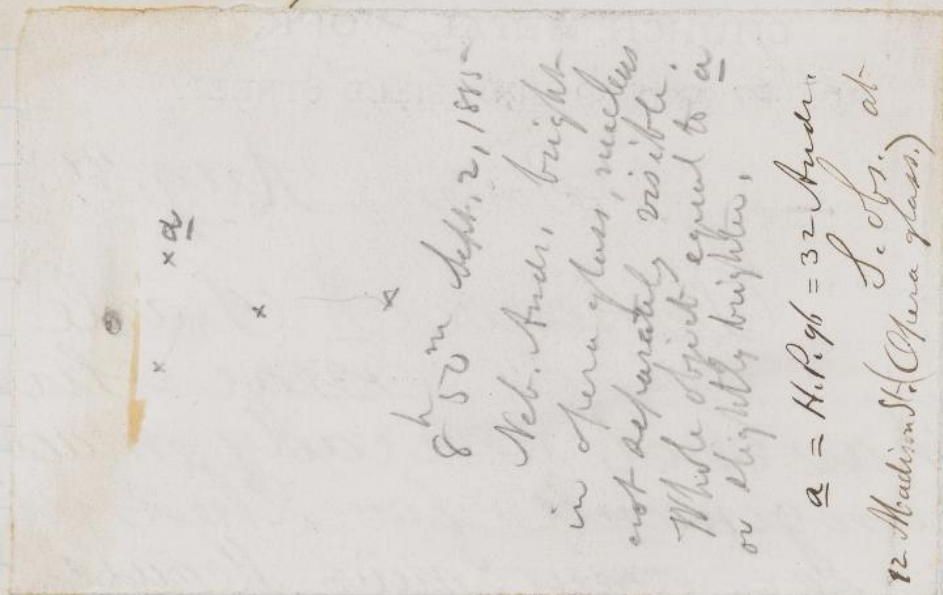 a
8h 50m Sept. 2, 1885
Neb. Andr. bright
in opera glass, nucleus
not separately visible.
Whole object equal to a
or slightly brighter.
a = H.P. 96 = 32 Andr.
S. Obs. at
12 Madison St. (Opera glass.)